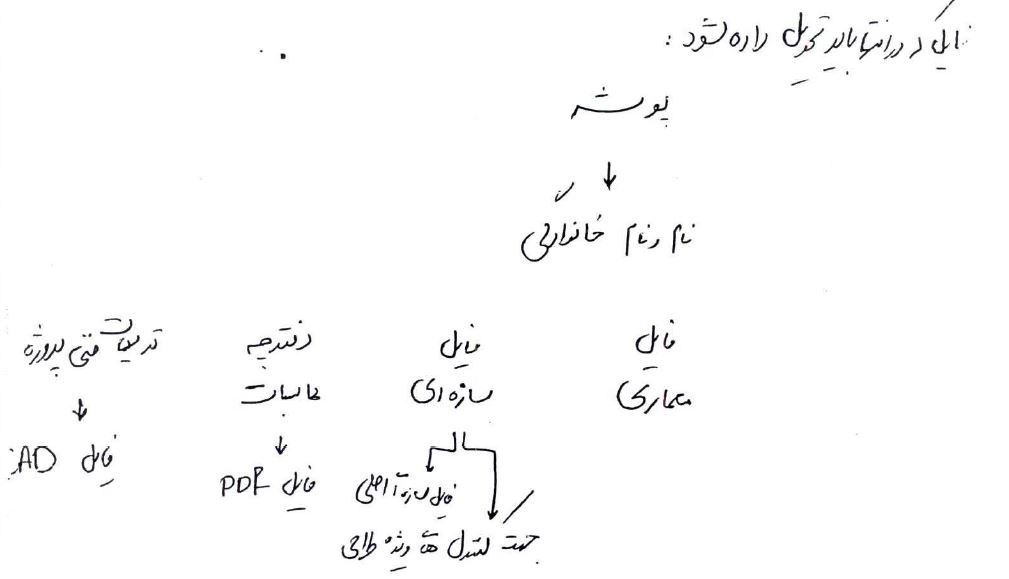 فایلی که در انتها باید تحویل داده شود :
پوشه
↓
نام و نام خانوادگی
فایل معماری
فایل سازه ای
فایل سازه اصلی
جهت کنترل های ویژه طراحی
دفترچه محاسبات
↓
فایل PDF
فنی پروژه
↓
فایل AD